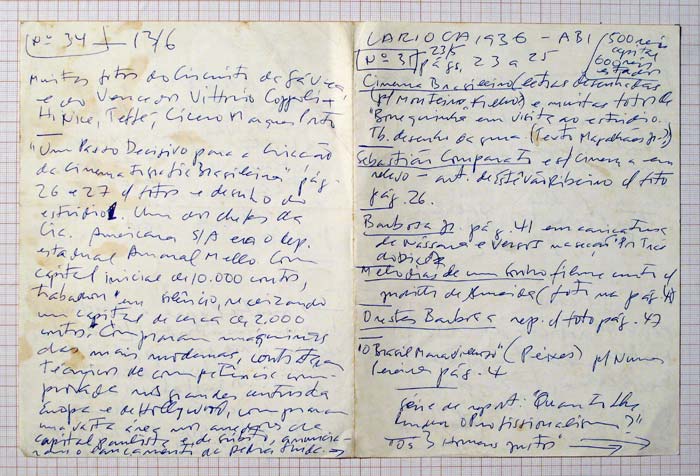 Nº 34 — 13/6
Muitas fotos do Circuito da Gávea
e do Vencedor Vittorio Coppoli –
H. Nice, Teffé, Cicero Marques Porto
"Um Passo Decisivo para a Criação
da Cinematografia Brasileira" pág.
26 e 27 c/ fotos e desenho do
estúdio. Um dos chefes da
Cia. Americana S/A era o dep.
estadual Amaral Mello. Com
capital inicial de 10.000 contos,
trabalhou em silêncio, realizando
um capital de cerca de 2.000
contos. Compraram maquinas
das mais modernas, contratam
técnicos de competência com-
provada nos grandes centros da
Europa e de Hollywood, compraram
uma vasta área nos arredores da
capital paulista e, de súbito, anuncia-
ram o lançamento da pedra funda. →
CARIOCA 1936 – ABI
500 reis
capital
600 reis
estados
Nº 31 23/5 págs. 23 a 25
Cinema Brasileiro (letras desenhadas
p/ Monteiro Filho) e muitas fotos de
"Bonequinha em visita ao estúdio.
Tb. desenho da (Texto Magalhães Jr.)
Sebastián Comparato e s/ cinema em
relevo – art. de Estevão Ribeiro c/ foto
pág. 26.
Barbosa Jr. pág. 41 em caricatura
de Nássara e Versos na seção
Melodias de um Sonho filme c/
de Almeida (foto na pág.
Orestes Barbosa rep. c/ foto pág. 47
"O Brasil Maravilhoso" (Peixes) p/ Nunes
Pereira pág. 4
Série de report: "Quanto lhe
rendeu o Profissionalismo?"
"Os 3 Homens justos" →